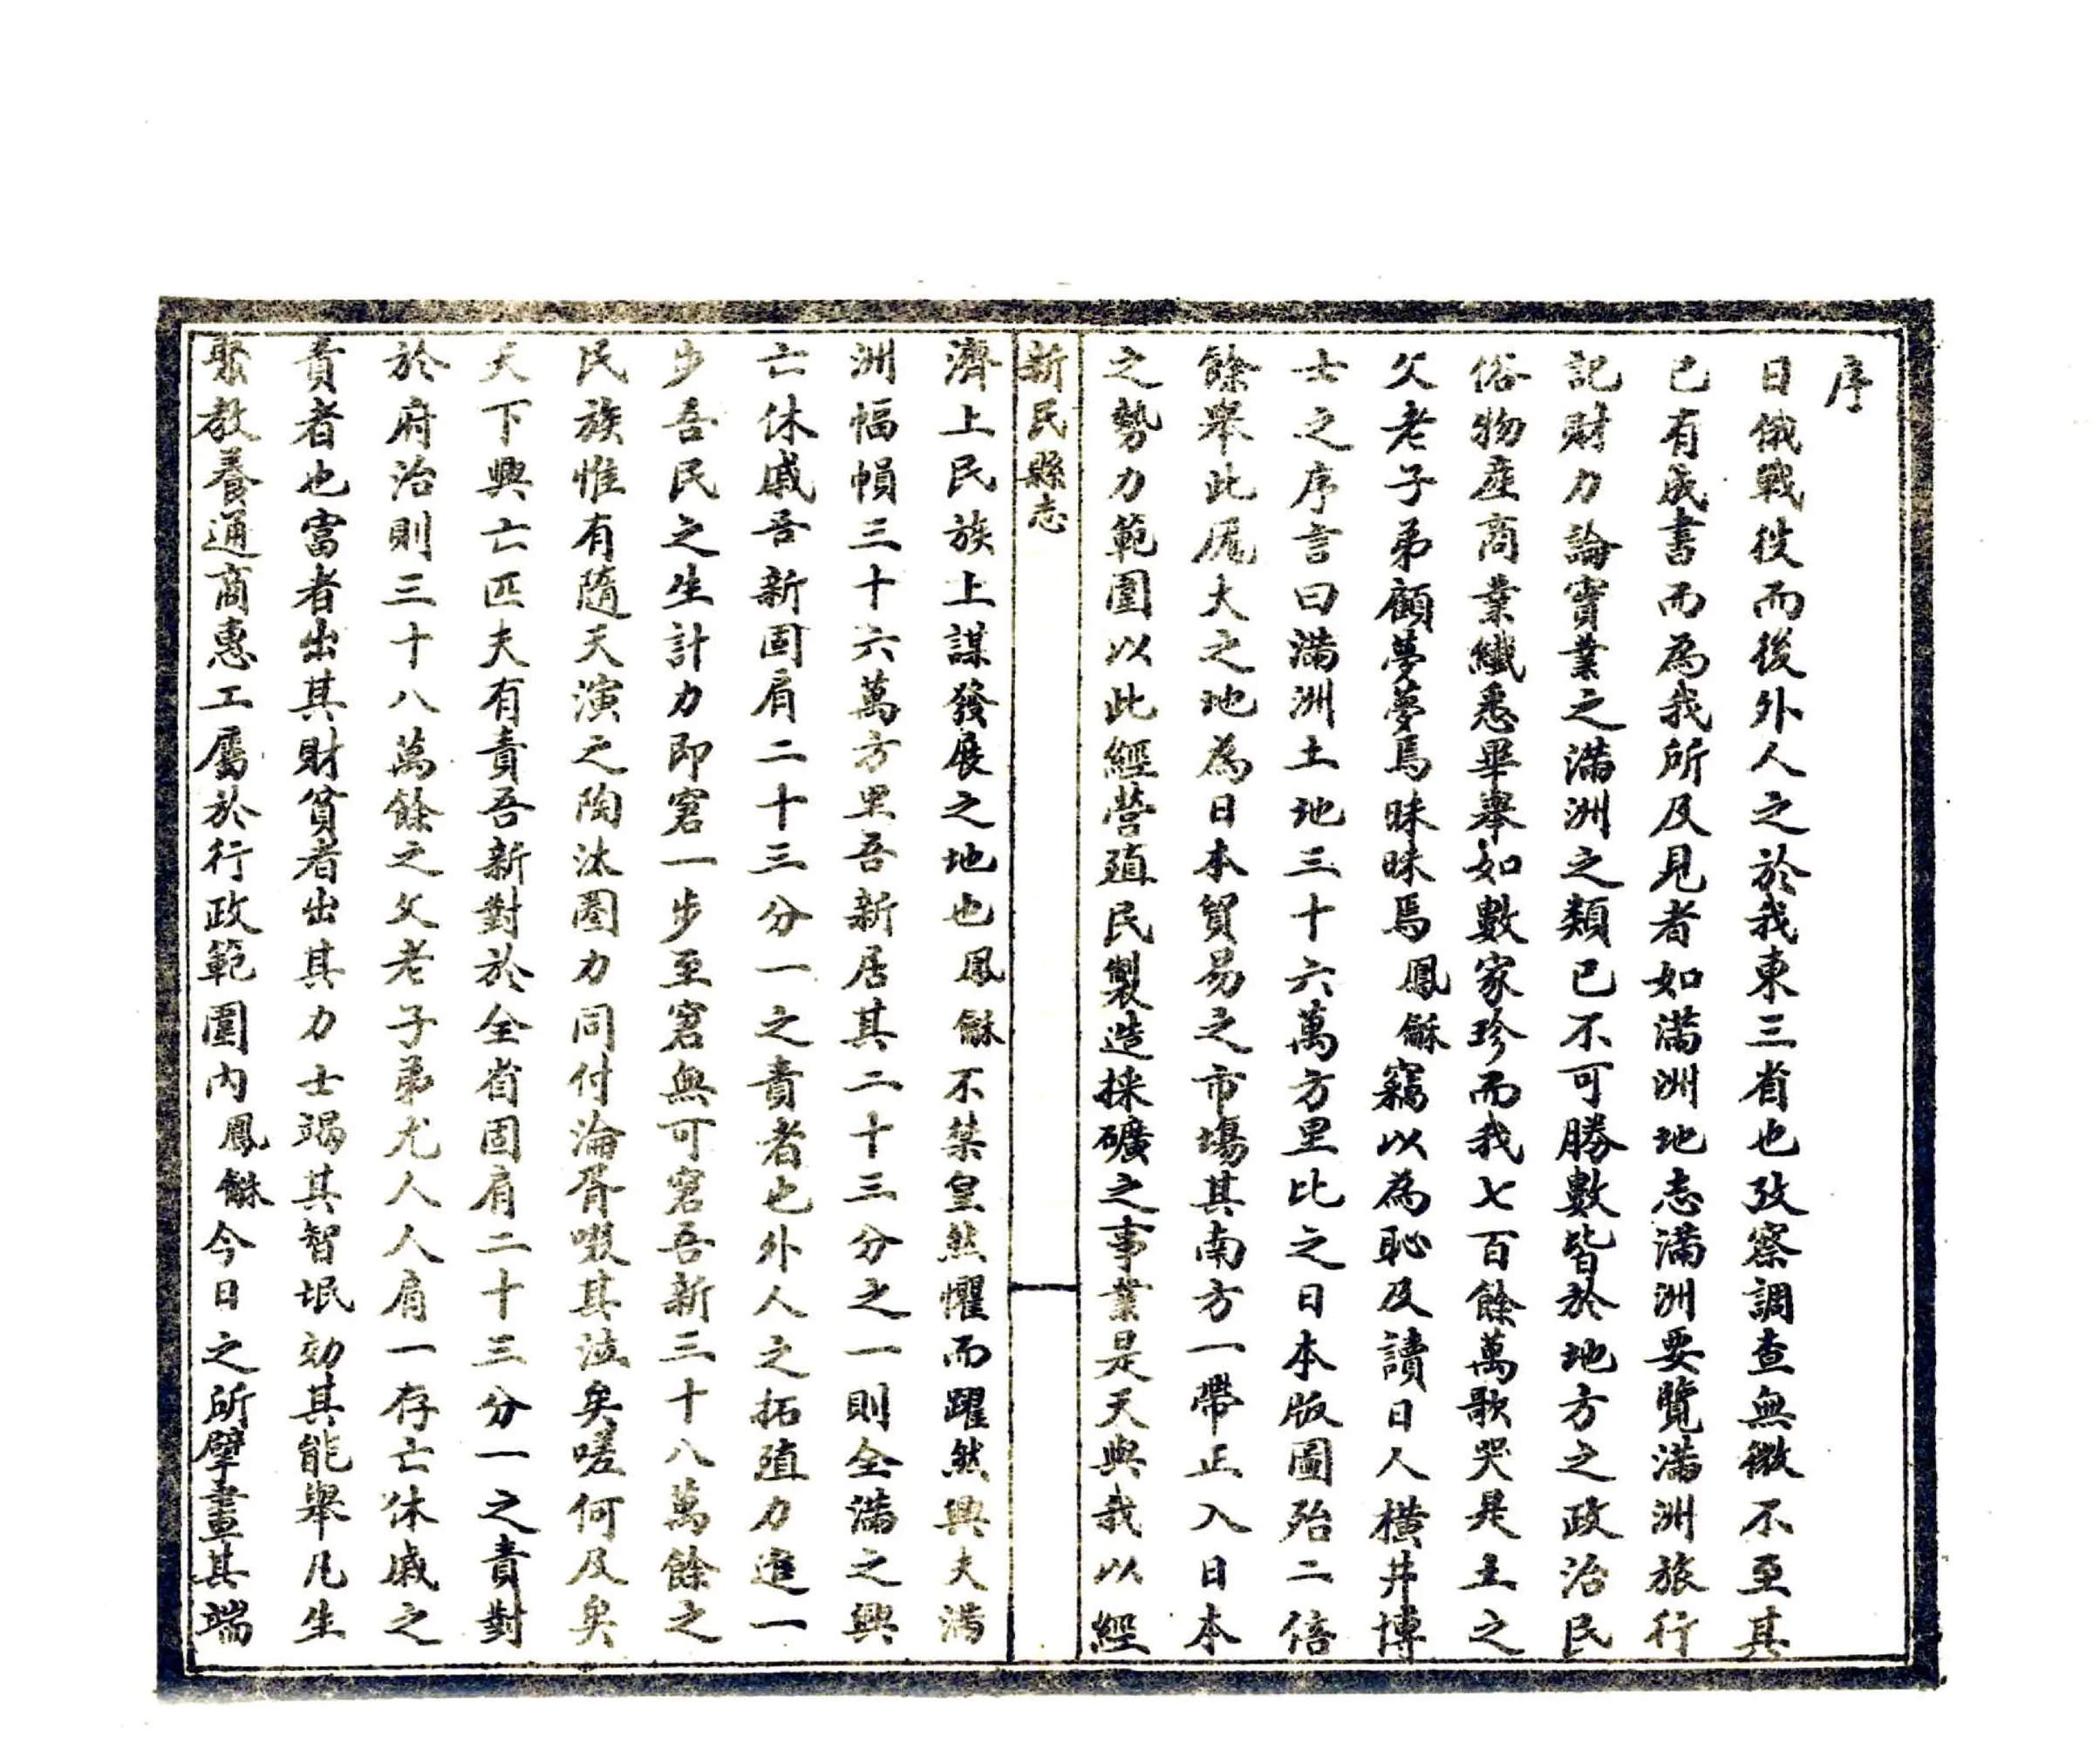 序
日俄戰役而後外人之於我東三省也攷察調查無微不至其
已有成書而為我所及見者如滿洲地志滿洲要覽滿洲旅行
記財力論實業之滿洲之類已不可勝數皆於地方之政治民
俗物產商業纖悉畢舉如數家珍而我七百餘萬歌哭是土之
父老子弟顧夢夢焉昧昧焉鳳龢竊以為恥及讀日人橫井博
士之序言曰滿洲土地三十六萬方里比之日本版圖殆二倍
餘舉此厖大之地為日本貿易之市場其南方一帶正入日本
之勢力範圍以此經營殖民製造採礦之事業是天與我以經
新民縣志
濟上民族上謀發展之地也鳳龢不禁皇然懼而躍然興夫滿
洲幅幀三十六萬方里吾新居其二十三分之一則全滿之興
亡休戚吾新固肩二十三分一之責者也外人之拓殖力進一
步吾民之生計力即窘一步至窘無可窘吾新三十八萬餘之
民族惟有隨天演之陶汰圈力同付淪胥啜其泣矣嗟何及矣
天下興亡匹夫有責吾新對於全省固肩二十三分一之責對
於府治則三十八萬餘之父老子弟尤人人肩一存亡休戚之
責者也富者出其財貧者出其力士竭其智氓効其能舉凡生
聚教養通商惠工屬於行政範圍內鳳龢今日之所擘畫其端